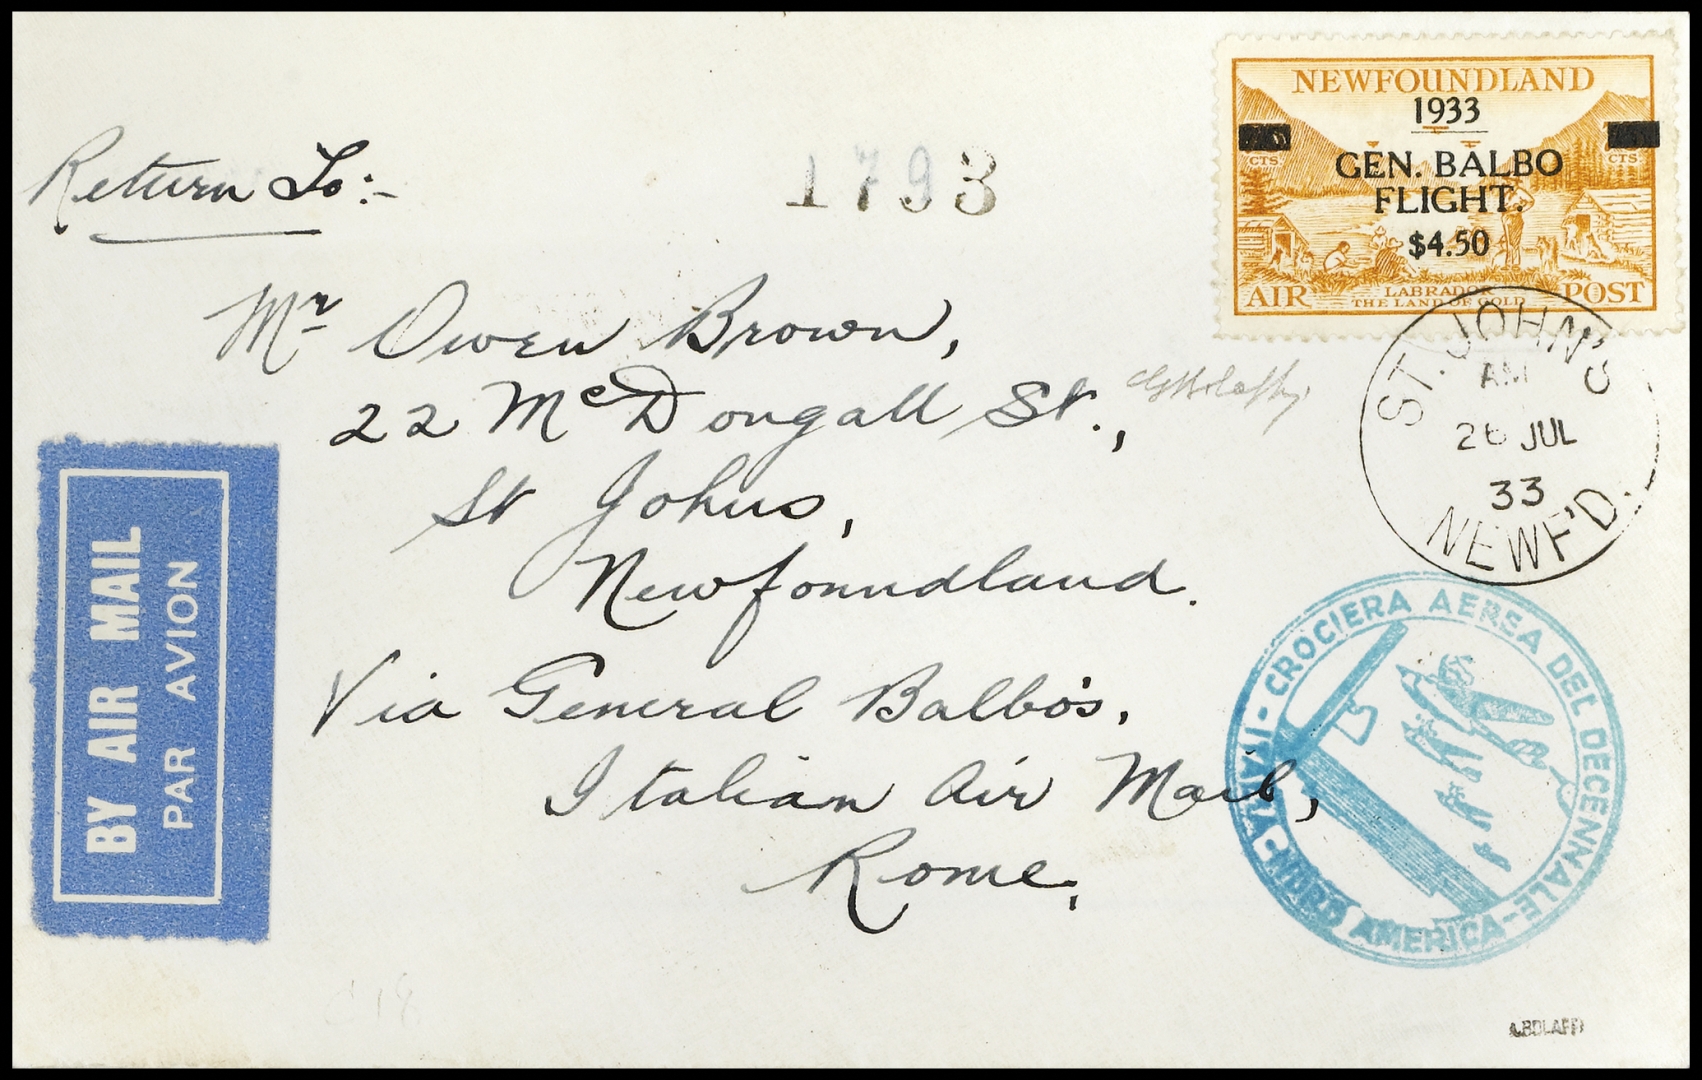 NEWFOUNDLAND
1933
CTS. CTS.
GEN. BALBO
FLIGHT.
$4.50
LABRADOR
AIR THE LAND OF GOLD POST
1793
Return To:-
Mr Owen Brown,
22 McDougall St.,
St Johns,
Newfoundland.
Via General Balbo's,
Italian Air Mail,
Rome,
BY AIR MAIL
PAR AVION
ST. JOHN'S
AM
26 JUL
33
NEWF'D.
CROCIERA AEREA DEL DECENNALE-
NORD AMERICA-
A.BOLAFFI